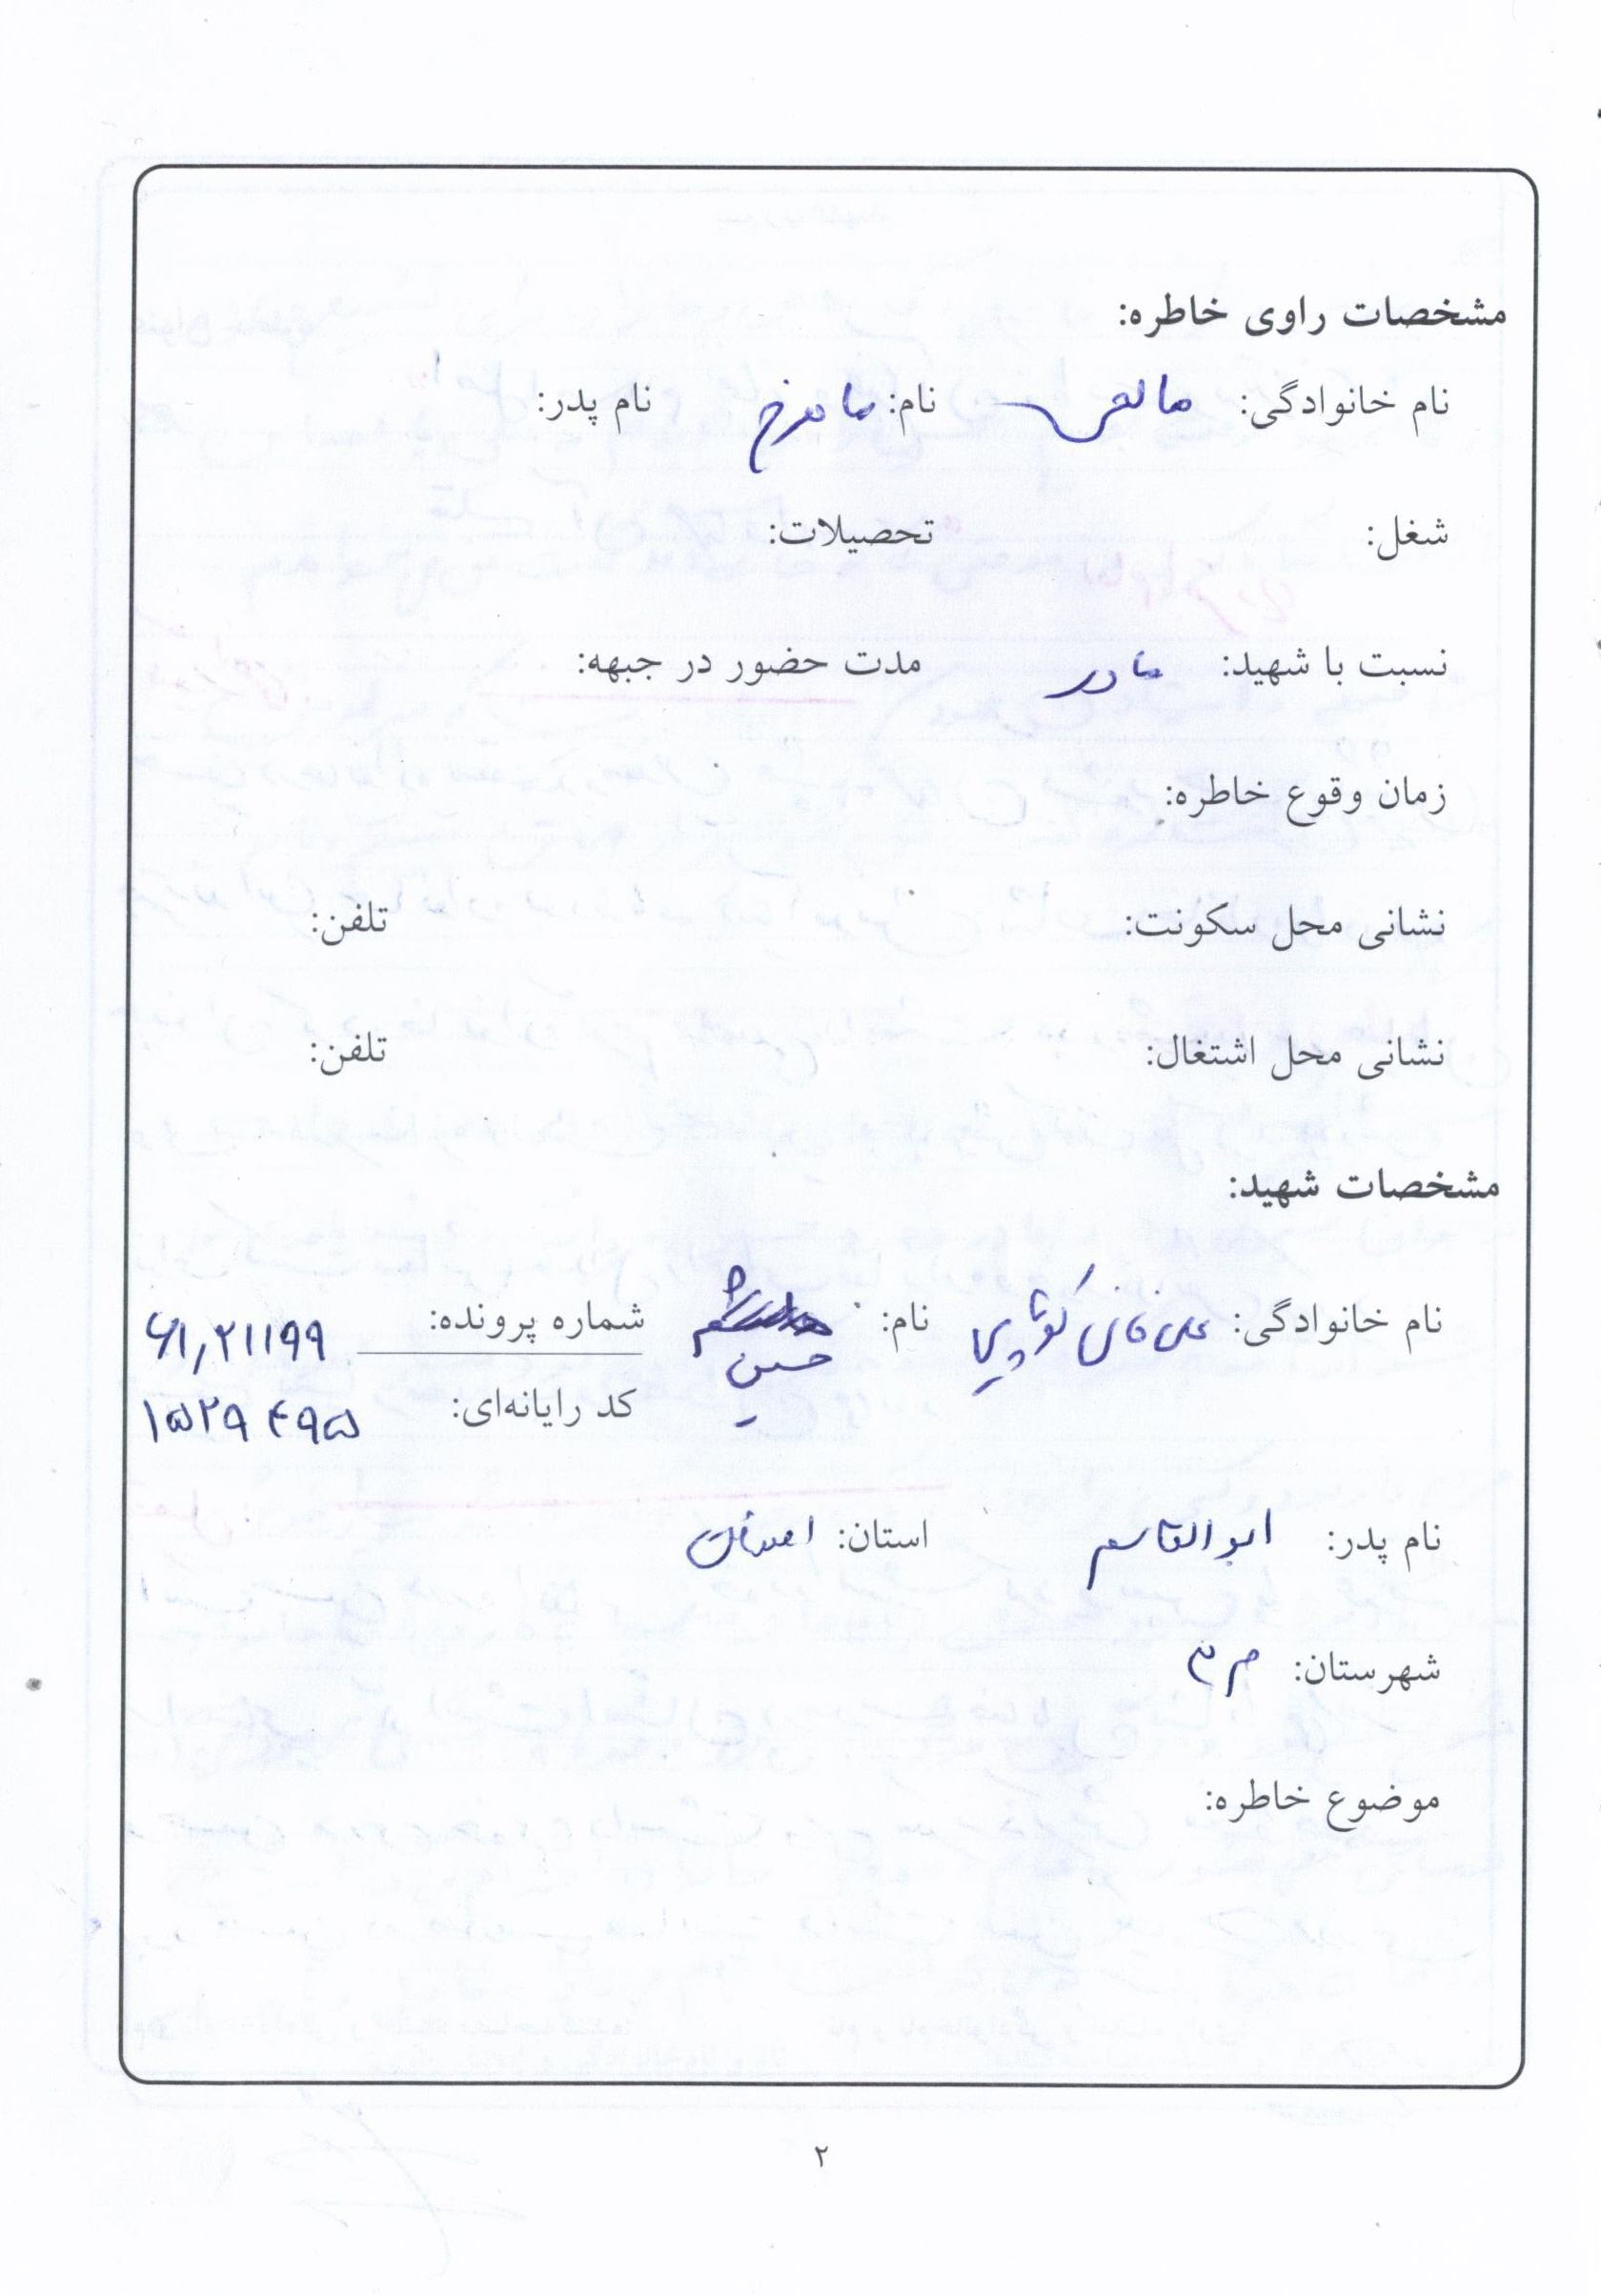 مشخصات راوی خاطره:
نام خانوادگی: نام: نام پدر:
شغل: تحصیلات:
نسبت با شهید: مادر مدت حضور در جبهه:
زمان وقوع خاطره:
نشانی محل سکونت: تلفن:
نشانی محل اشتغال: تلفن:
مشخصات شهید:
نام خانوادگی: نام: حسین شماره پرونده: ۶۱,۲۱۱۹۹
کد رایانه‌ای: ۱۵۲۹۴۹۵
نام پدر: ابوالقاسم استان: اصفهان
شهرستان:
موضوع خاطره:
۲